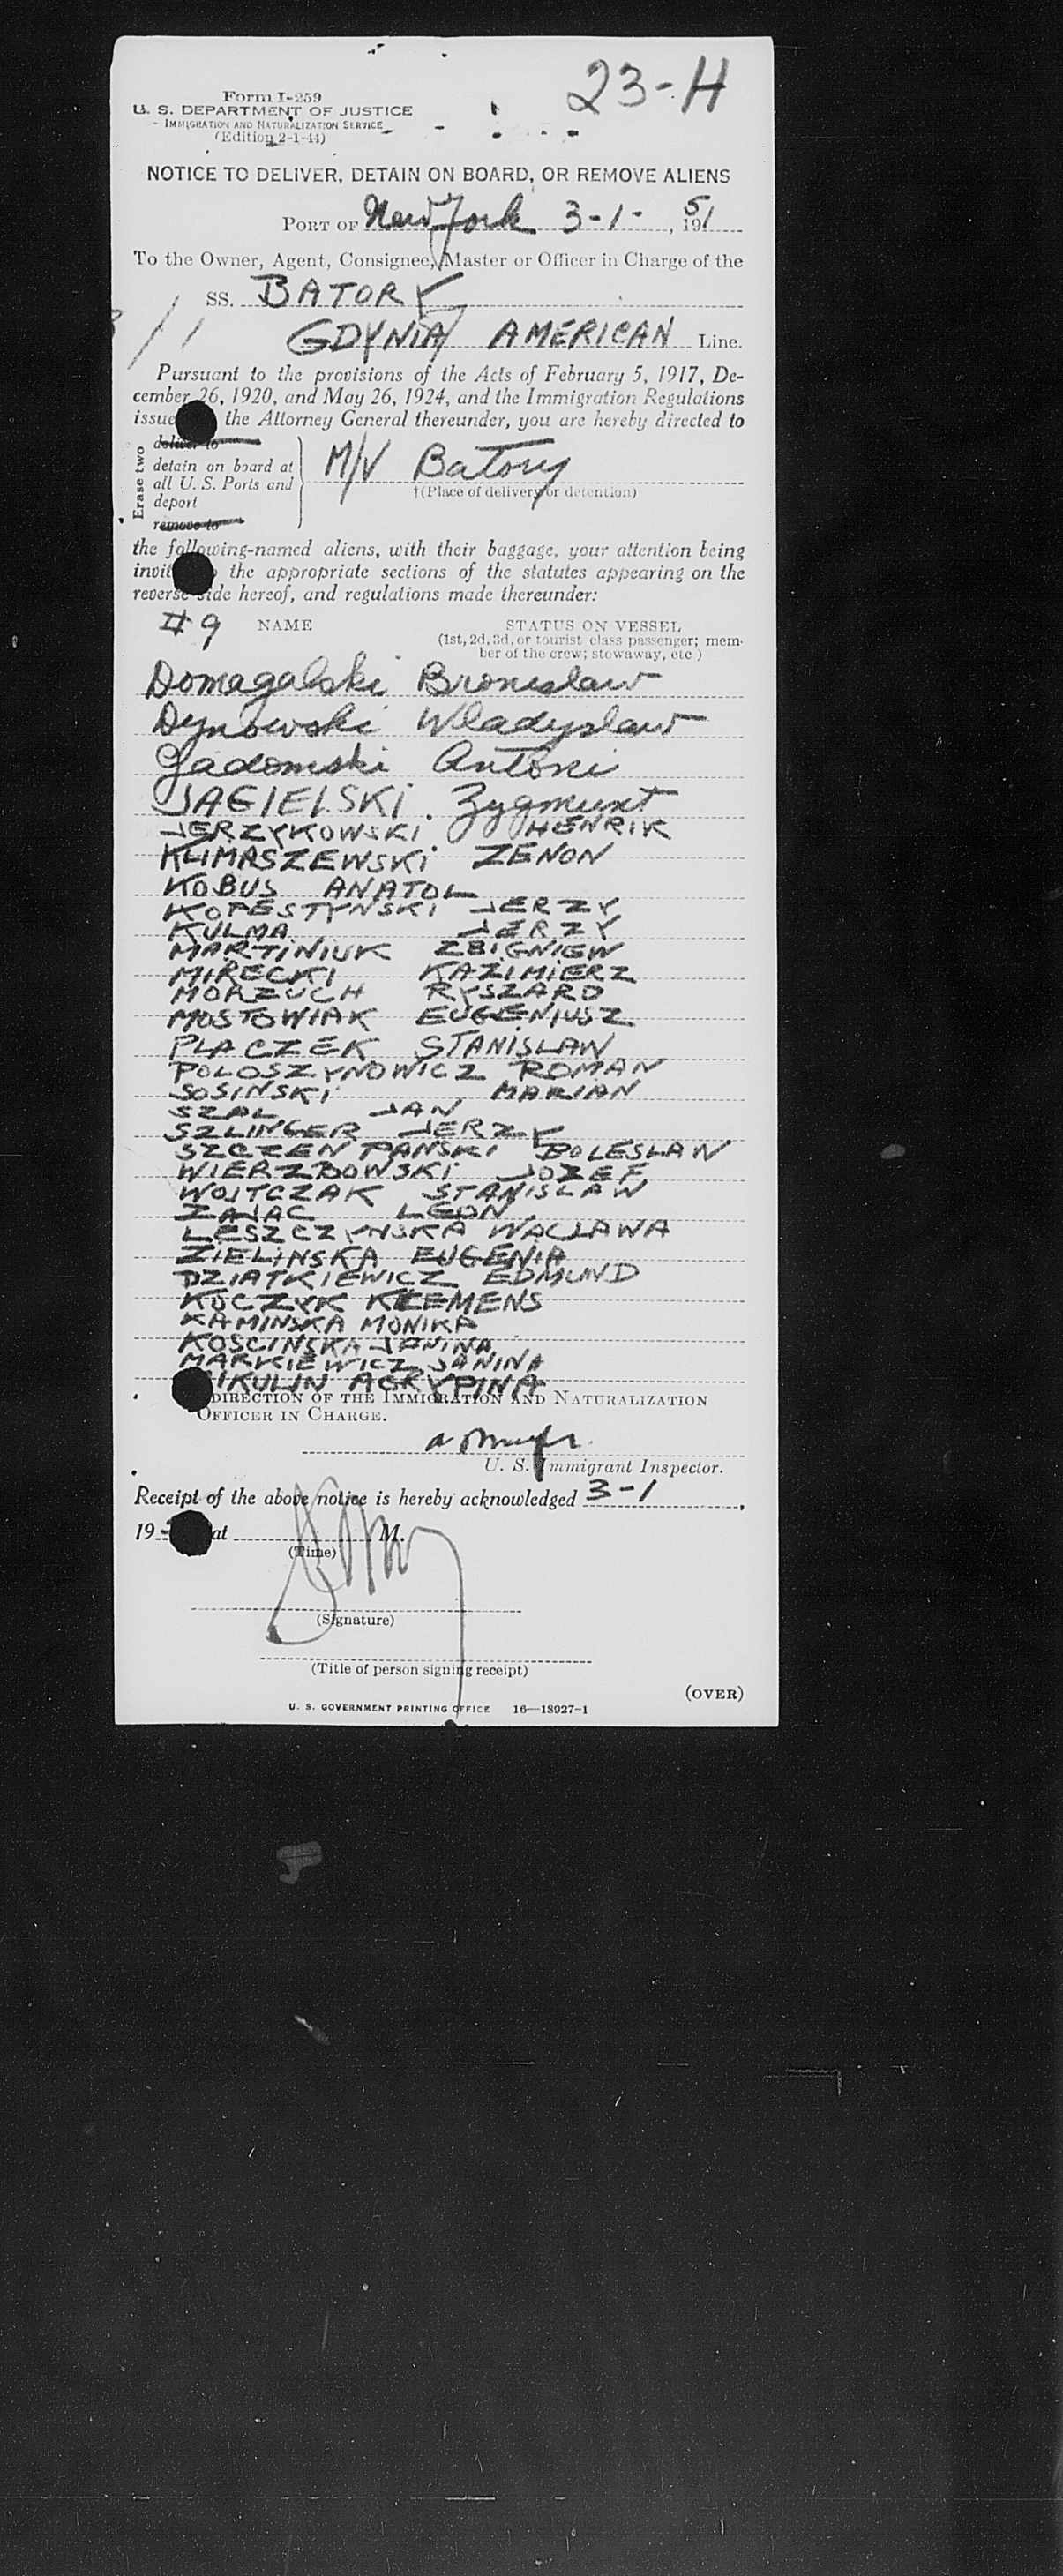 23-H
Form I-259
U. S. DEPARTMENT OF JUSTICE
IMMIGRATION AND NATURALIZATION SERVICE
(Edition 2-1-44)
NOTICE TO DELIVER, DETAIN ON BOARD, OR REMOVE ALIENS
PORT OF New York 3-1-, 1951
To the Owner, Agent, Consignee, Master or Officer in Charge of the
SS. BATORY
GDYNIA AMERICAN Line.
Pursuant to the provisions of the Acts of February 5, 1917, De-
cember 26, 1920, and May 26, 1924, and the Immigration Regulations
issue the Attorney General thereunder, you are hereby directed to
Erase two
deliver to
detain on board at
all U. S. Ports and
deport
remove to
M/V Batory
†(Place of delivery or detention)
the following-named aliens, with their baggage, your attention being
invit the appropriate sections of the statutes appearing on the
reverse side hereof, and regulations made thereunder:
#9 NAME STATUS ON VESSEL
(1st, 2d, 3d, or tourist class passenger; mem-
ber of the crew; stowaway, etc.)
Domagalski Bronislaw
Dynowski Wladyslaw
Gadomski Antoni
JAGIELSKI Zygmunt
JERZYKOWSKI HENRIK
KLIMASZEWSKI ZENON
KOBUS ANATOL
KOPESTYNSKI JERZY
KULMA JERZY
MARTINIUK ZBIGNIEW
MIRECKI KAZIMIERZ
MORZUCH RYSZARD
MOSTOWIAK EUGENIUSZ
PLACZEK STANISLAW
POLOSZYNOWICZ ROMAN
SOSINSKI MARIAN
SZAL JAN
SZLINGER JERZY
SZCZENPANSKI BOLESLAW
WIERZBOWSKI JOZEF
WOJTCZAK STANISLAW
ZAJAC LEON
LESZCZYNSKA WACLAWA
ZIELINSKA EUGENIA
DZIATKIEWICZ EDMUND
KUCZYK KLEMENS
KAMINSKA MONIKA
KOSCINSKA JANINA
MARKIEWICZ JANINA
IKULIN AGRYPINA
DIRECTION OF THE IMMIGRATION AND NATURALIZATION
OFFICER IN CHARGE.
U. S. Immigrant Inspector.
Receipt of the above notice is hereby acknowledged 3-1,
19 at M.
(Time)
(Signature)
(Title of person signing receipt)
(OVER)
U. S. GOVERNMENT PRINTING OFFICE 16—18927-1